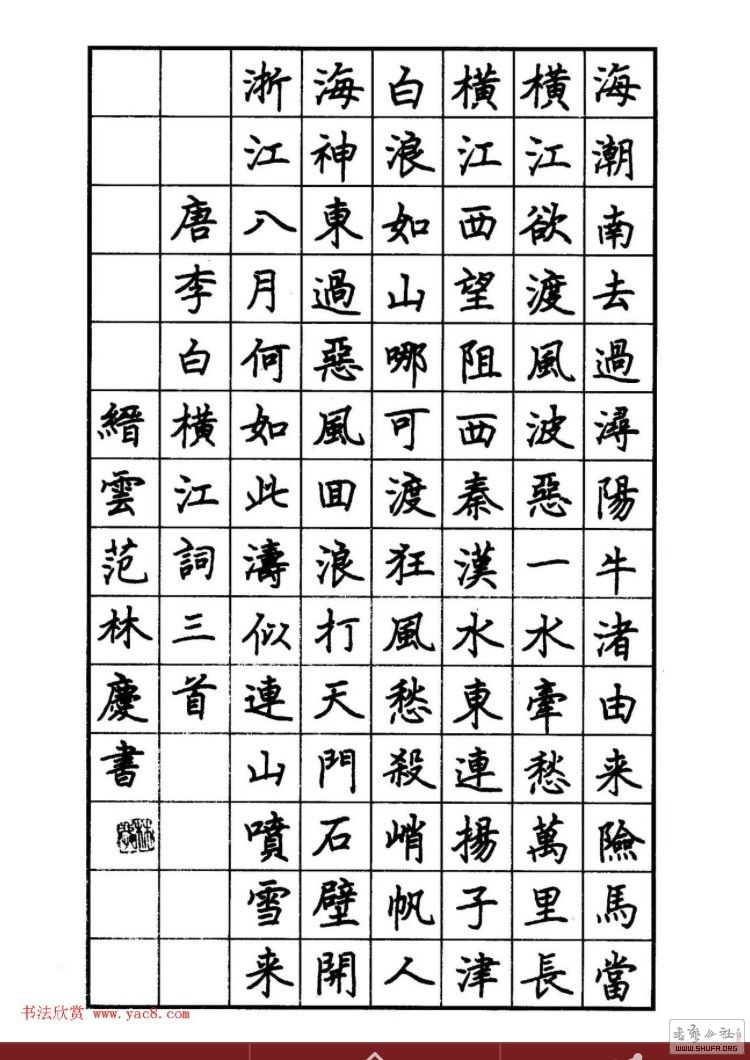 海潮南去過潯陽牛渚由来險馬當
橫江欲渡風波惡一水牽愁萬里長
橫江西望阻西秦漢水東連揚子津
白浪如山哪可渡狂風愁殺峭帆人
海神東過惡風回浪打天門石壁開
浙江八月何如此濤似連山噴雪来
唐李白橫江詞三首
縉雲范林慶書
书法欣赏 www.yac8.com
WWW.SHUFA.ORG